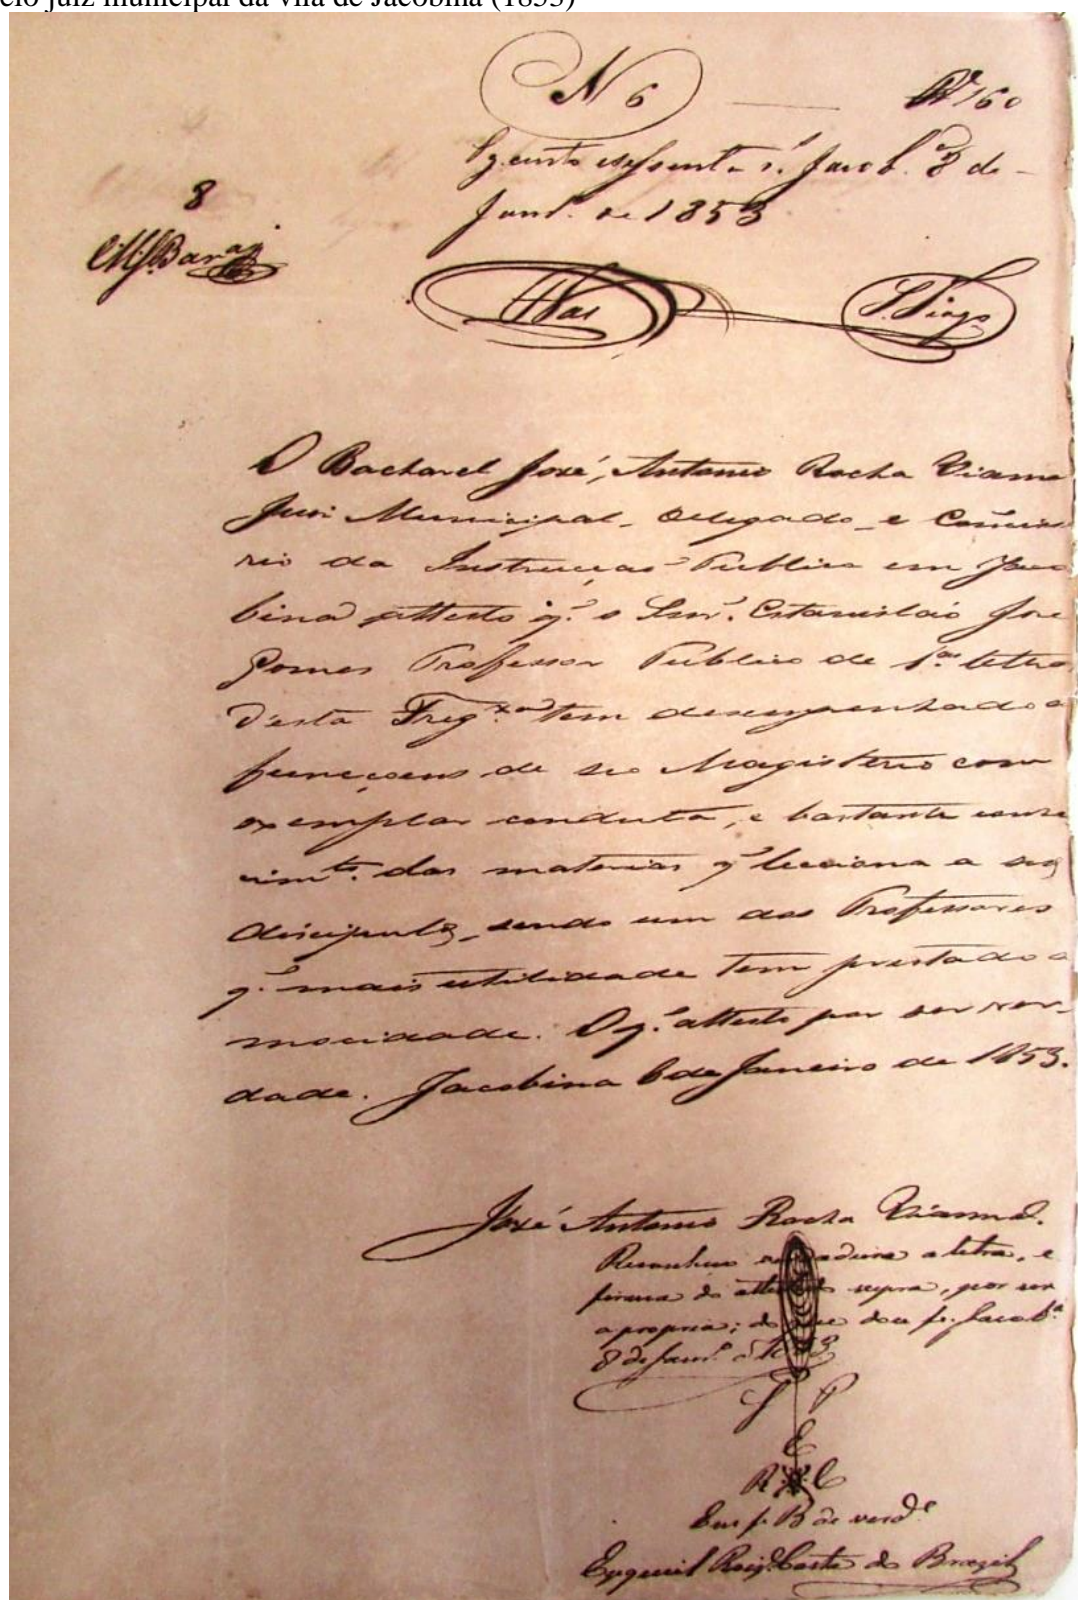 elo juiz municipal da vila de Jacobina (1853)
N 6 Rs 160
Pg. cento esessenta rs. Jacob.ª 8 de
Janr.º de 1853
8
Vas S. Tiago
O Bacharel José Antonio Rocha Vianna
Juis Municipal, Delegado, e Comissa
rio da Instrucção Publica em Jaco
bina attesto q.ᵉ o Snr. Estanisláo José
Gomes Professor Publico de 1.ᵃˢ letra
d'esta Freg.ˣᵃ tem desempenhado a
funcçoens de seo Magisterio com
exemplar conduta, e bastante conhe
cim.ᵗᵒ das materias q' lecciona a seos
discipulos, sendo um dos Professores
q.ᵉ mais utilidade tem prestado a
mocidade. O q.ᵉ attesto por ser ver-
dade. Jacobina 6 de Janeiro de 1853.
José Antonio Rocha Vianna.
Reconheço verdadeira a letra, e
firma do attestado supra, por ser
a propria; do que dou fe. Jacob.ª
8 de Janr.º de 1853
E
R C
Em f. de verd.ᵉ
Costa do Brazil